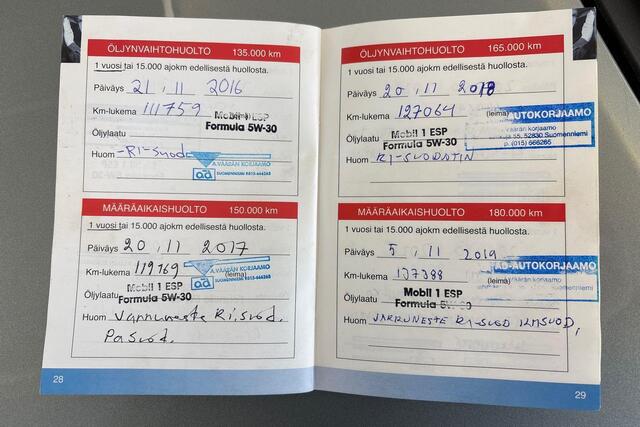 ÖLJYNVAIHTOHUOLTO 135.000 km
1 vuosi tai 15.000 ajokm edellisestä huollosta.
Päiväys 21.11 2016
Km-lukema 111759
Mobil 1 ESP
Formula 5W-30
Öljylaatu
Huom -Ri-suod
A.VÄÄRÄN KORJAAMO
SUOMENNIEMI
ad
MÄÄRÄAIKAISHUOLTO 150.000 km
1 vuosi tai 15.000 ajokm edellisestä huollosta.
Päiväys 20.11 2017
Km-lukema 119769 (leima)
A.VÄÄRÄN KORJAAMO
SUOMENNIEMI
ad
Mobil 1 ESP
Öljylaatu Formula 5W-30
Huom Jarruneste Ri.suod.
Pa suod.
28
ÖLJYNVAIHTOHUOLTO 165.000 km
1 vuosi tai 15.000 ajokm edellisestä huollosta.
Päiväys 20.11 2018
Km-lukema 127064 (leima)
AUTOKORJAAMO
Väärän korjaamo
55, 52830 Suomenniemi
p. (015)
Mobil 1 ESP
Öljylaatu Formula 5W-30
Huom RI-SUODATIN
MÄÄRÄAIKAISHUOLTO 180.000 km
1 vuosi tai 15.000 ajokm edellisestä huollosta.
Päiväys 5.11 2019
Km-lukema 137388 (leima)
AD-AUTOKORJAAMO
Mobil 1 ESP
Öljylaatu Formula 5W-30
Huom JARRUNESTE RI-SUOD ILMSUOD,
29